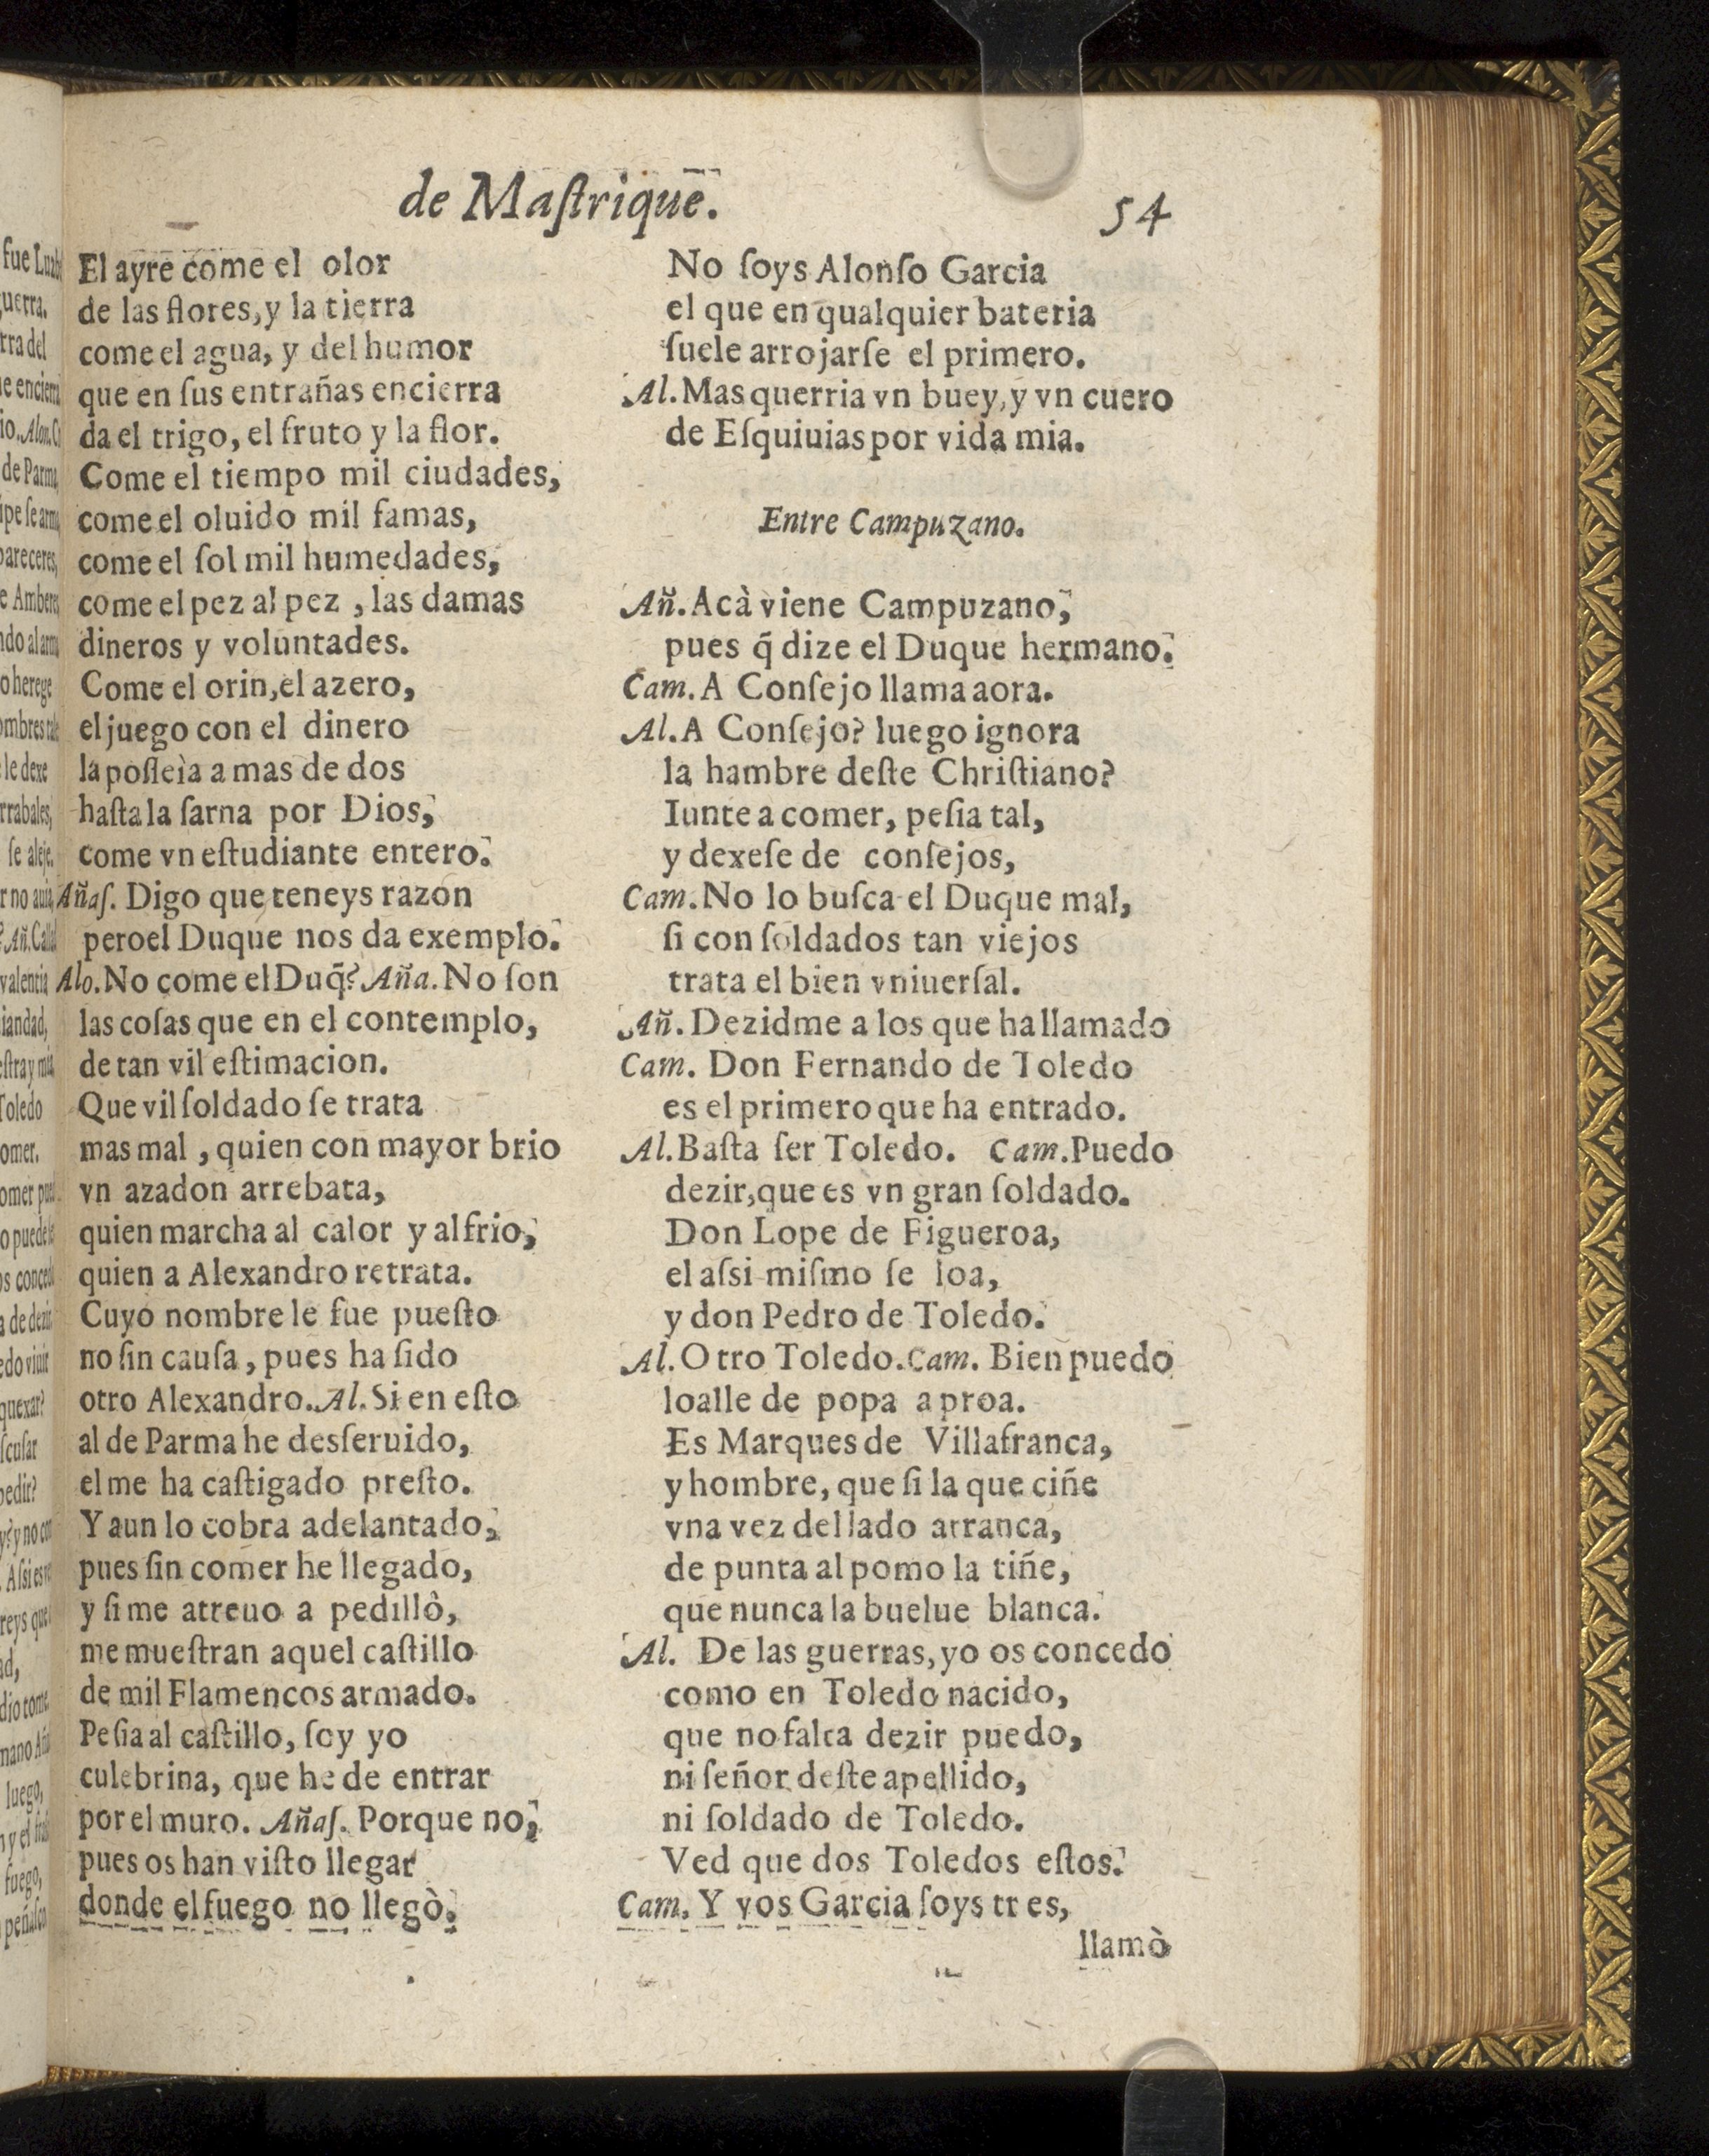 de Maſtriquē.
54
El ayre come el olor
de las flores, y la tierra
come el agua, y del humor
que en ſus entrañas encierra
da el trigo, el fruto y la flor.
Come el tiempo mil ciudades,
come el oluido mil famas,
come el ſol mil humedades,
come el pez al pez, las damas
dineros y voluntades.
Come el orin, el azero,
el juego con el dinero
la poſſeìa a mas de dos
haſta la ſarna por Dios,
come vn eſtudiante entero.
Añaſ. Digo que teneys razon
pero el Duque nos da exemplo.
Alo. No come el Duq̃? Aña. No ſon
las coſas que en el contemplo,
de tan vil eſtimacion.
Que vil ſoldado ſe trata
mas mal, quien con mayor brio
vn azadon arrebata,
quien marcha al calor y al frio,
quien a Alexandro retrata.
Cuyo nombre le fue pueſto
no ſin cauſa, pues ha ſido
otro Alexandro. Al. Si en eſto
al de Parma he desſeruido,
el me ha caſtigado preſto.
Y aun lo cobra adelantado,
pues ſin comer he llegado,
y ſi me atreuo a pedillò,
me mueſtran aquel caſtillo
de mil Flamencos armado.
Peſia al caſtillo, ſoy yo
culebrina, que he de entrar
por el muro. Añaſ. Porque no,
pues os han viſto llegar
donde el fuego no llegò.
No ſoys Alonſo Garcia
el que en qualquier bateria
ſuele arrojarſe el primero.
Al. Mas querria vn buey, y vn cuero
de Eſquiuias por vida mia.
Entre Campuzano.
Añ. Acà viene Campuzano,
pues q̃ dize el Duque hermano.
Cam. A Conſejo llama aora.
Al. A Conſejo? luego ignora
la hambre deſte Chriſtiano?
Iunte a comer, peſia tal,
y dexeſe de conſejos,
Cam. No lo buſca el Duque mal,
ſi con ſoldados tan viejos
trata el bien vniuerſal.
Añ. Dezidme a los que ha llamado
Cam. Don Fernando de Toledo
es el primero que ha entrado.
Al. Baſta ſer Toledo. Cam. Puedo
dezir, que es vn gran ſoldado.
Don Lope de Figueroa,
el aſsi miſmo ſe loa,
y don Pedro de Toledo.
Al. Otro Toledo. Cam. Bien puedo
loalle de popa a proa.
Es Marques de Villafranca,
y hombre, que ſi la que ciñe
vna vez del lado arranca,
de punta al pomo la tiñe,
que nunca la buelue blanca.
Al. De las guerras, yo os concedo
como en Toledo nacido,
que no falta dezir puedo,
ni ſeñor deſte apellido,
ni ſoldado de Toledo.
Ved que dos Toledos eſtos.
Cam. Y vos Garcia ſoys tres,
llamò